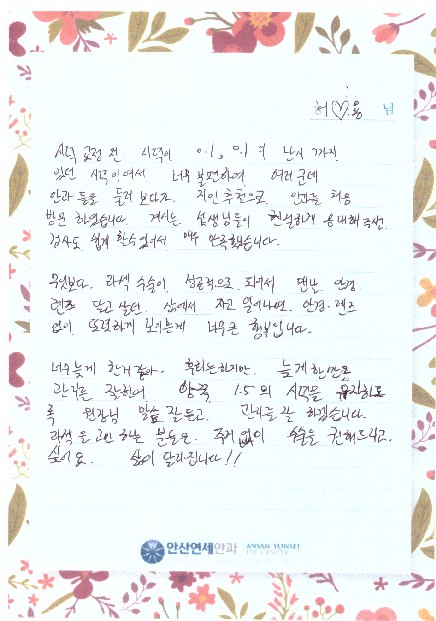 허♡용 님
시력 교정 전 시력이 0.1, 0.1에 난시 까지
있던 시력이여서 너무 불편하여 여러군데
안과 등을 둘러 보다가. 지인 추천으로. 안과를 처음
방문 하였습니다. 계시는 선생님들이 친절하게 응대해주셔
검사도 쉽게 할수 있어서 매우 만족했습니다.
무엇보다. 라섹 수술이 성공적으로 되어서 맨날 안경
렌즈 달고 살던. 삶에서 자고 일어나면. 안경·렌즈
없이 또렷하게 보이는게 너무큰 행복입니다.
너무늦게 한거 같아. 후회는하지만. 늦게한만큼
관리를 잘하여 양쪽 1.5의 시력을 유지하도
록 원장님 말씀 잘듣고. 관리를 잘 하겠습니다.
라섹을 고민 하는 분들은. 주저 없이 수술을 권해드리고.
싶어요. 삶이 달라집니다!!
안산연세안과 ANSAN YONSEI
EYE CENTER